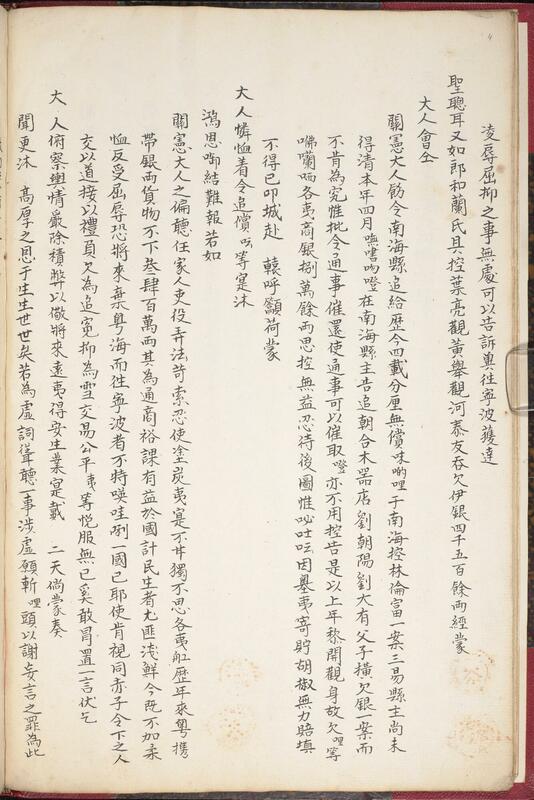 凌辱屈抑之事無處可以告訴與往寧波獲達
聖聰耳又如郎和蘭氏具控葉亮觀黃舉觀河泰友吞欠伊銀四千五百餘兩經蒙
大人會仝
關憲大人飭令南海縣追給歷今四載分厘無償味啲哩于南海控林倫富一案三易縣主尚未
得清本年四月嘸吻噔在南海縣主告追朝合木器店劉朝陽劉大有父子橫欠銀一案而
不肯為究惟批令通事催還使通事可以催取噔亦不用控告是以上年黎開觀身故欠哩等
咈囒哂各夷商銀捌萬餘兩思控無益忍待後圖惟吡吐呍因墨夷寄貯胡椒無力賠填
不得已叩城赴 轅呼籲荷蒙
大人憐恤着令追償哛等寔沐
鴻恩啣結難報若如
關憲大人之偏聽任家人吏役弄法苛索忍使塗炭夷寔不甘獨不思各夷舡歷年來粵攜
帶銀兩貨物不下叁肆百萬兩其為通商裕課有益於國計民生者尤匪淺鮮今既不加柔
恤反受屈辱恐將來棄粵海而往寧波者不特暎咭唎一國已耶使肯視同赤子令下之人
交以道接以禮負欠為追寃抑為雪交易公平夷等悅服無已奚敢冒置一言伏乞
大 人俯察輿情嚴除積弊以儆將來遠夷得安生業寔戴 二天倘蒙奏
聞更沐 高厚之恩于生生世世矣若為虛詞聳聽一事涉虛願斬哩頭以謝妄言之罪為此
4